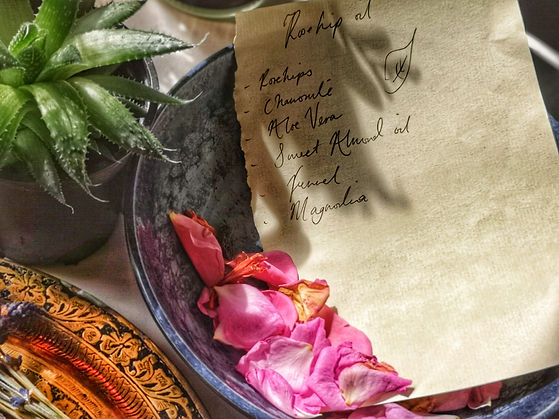 Rosehip oil
- Rosehips
Chamomile
- Aloe Vera
- Sweet Almond oil
- Fennel
- Magnolia